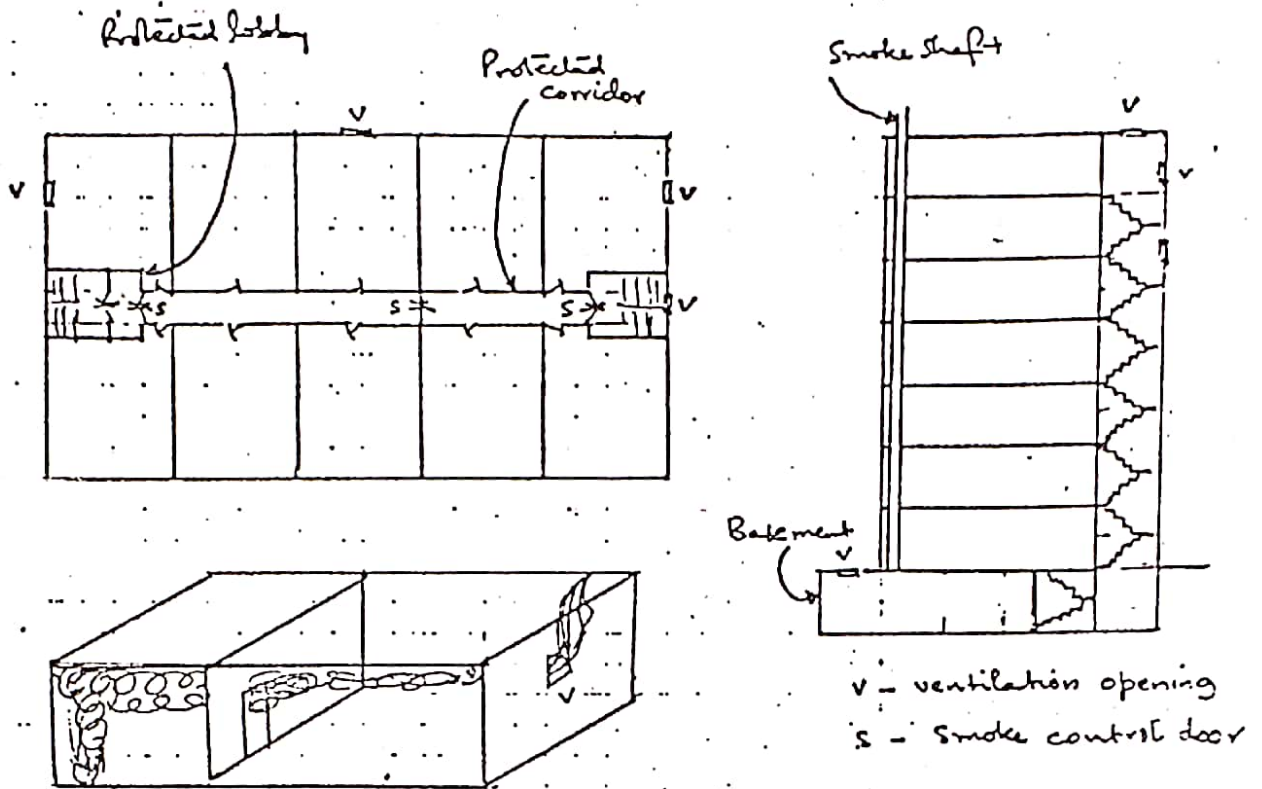 Protected lobby
Protected
corridor
V
V
V
S
S
S
V
Smoke shaft
V
V
Basement
V
V
V - ventilation opening
S - Smoke control door